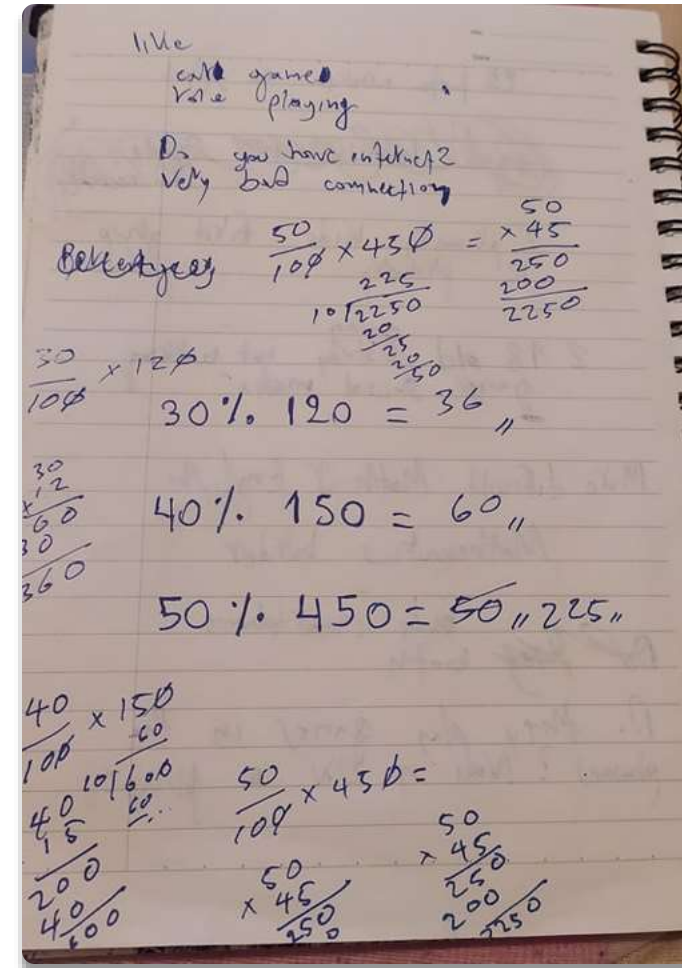 like
game
role playing
Do you have internet?
Very bad connection
50/100 × 450 =
50
× 45
250
200
2250
225
10 2250
20
25
20
50
30/100 × 120
30%. 120 = 36 ,,
30
×12
60
30
360
40%. 150 = 60 ,,
50%. 450 = 50 ,, 225 ,,
40/100 × 150
60
10 600
60
40
15
200
40
600
50/100 × 450 =
50
× 45
250
50
× 45
250
200
2250